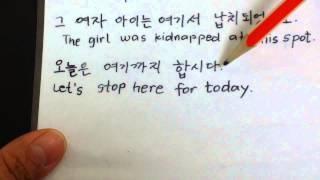 그 여자 아이는 여기서 납치되었
The girl was kidnapped at this spot.
오늘은 여기까지 합시다.
Let's stop here for today.